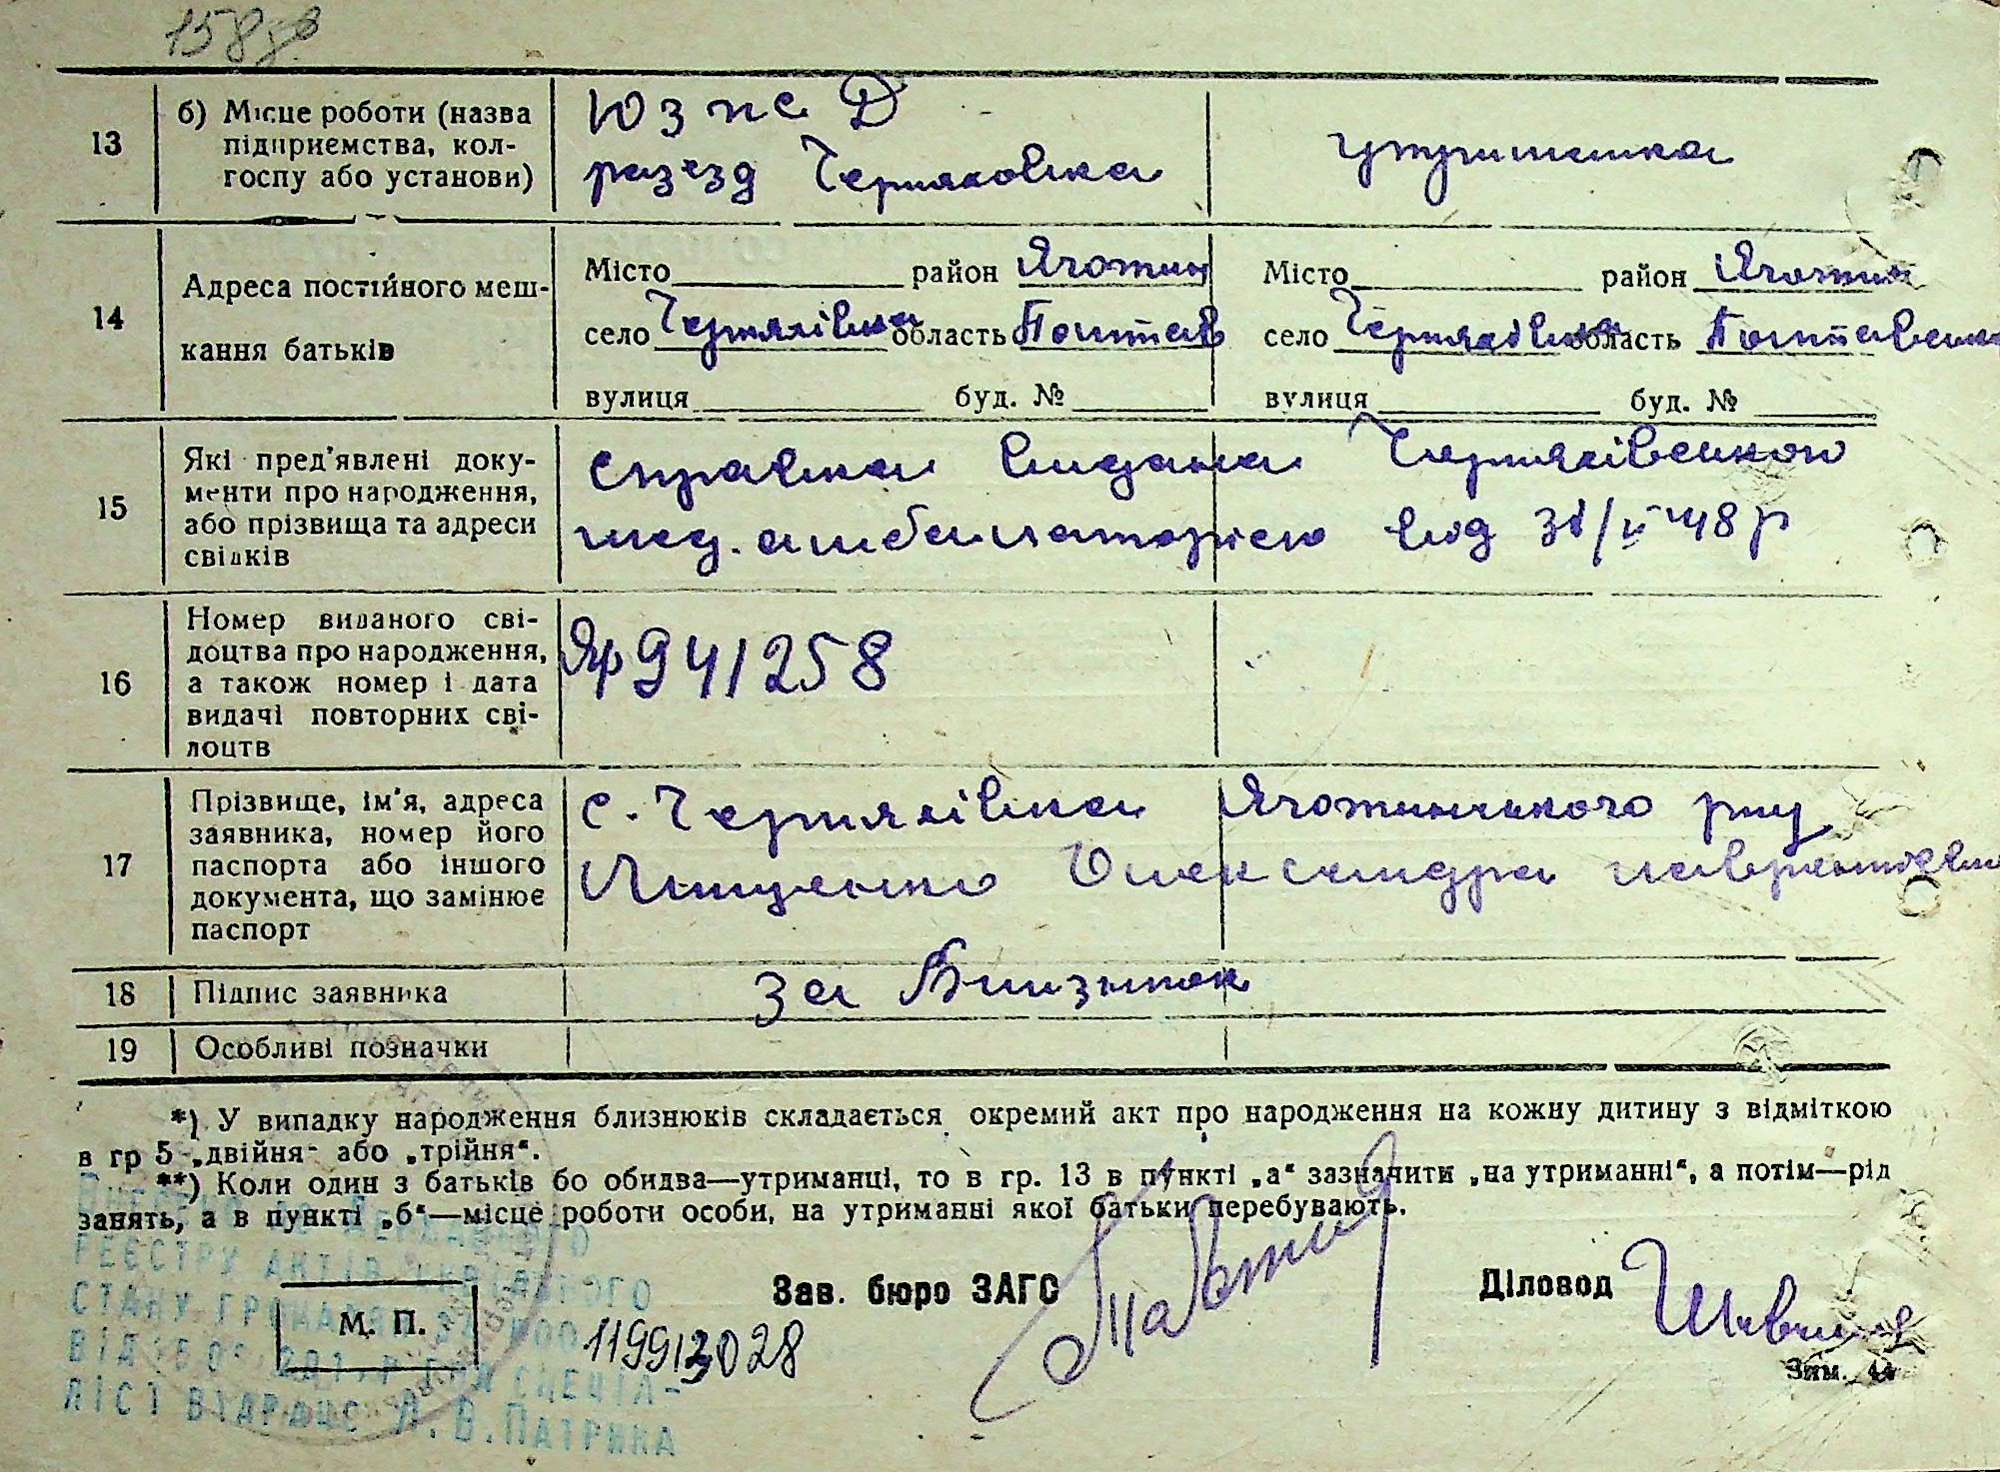 158
13
б) Місце роботи (назва
підприємства, кол-
госпу або установи)
ЮЗ же Д
разезд Черняховка
утриманка
14
Адреса постійного меш-
кання батьків
Місто район Яготин
село Черняхівка область Полтав
вулиця буд. №
Місто район Яготин
село Черняхівка область Полтавська
вулиця буд. №
15
Які пред'явлені доку-
менти про народження,
або прізвища та адреси
свідків
справка видана Черняхівською
мед. амбулаторією від 31/V 48 р
16
Номер виданого сві-
доцтва про народження,
а також номер і дата
видачі повторних сві-
доцтв
941258
17
Прізвище, ім'я, адреса
заявника, номер його
паспорта або іншого
документа, що замінює
паспорт
с. Черняхівка Яготинського р-ну
Олександра
18
Підпис заявника
за
19
Особливі позначки
*) У випадку народження близнюків складається окремий акт про народження на кожну дитину з відміткою
в гр 5 „двійня“ або „трійня“.
**) Коли один з батьків бо обидва—утриманці, то в гр. 13 в пункті „а“ зазначити „на утриманні“, а потім—рід
занять, а в пункті „б“—місце роботи особи, на утриманні якої батьки перебувають.
ДЕРЖАВНОГО
РЕЄСТРУ АКТІВ ЦИВІЛЬНОГО
СТАНУ ГРОМАДЯН ЗА №00
СПЕЦІА-
ЛІСТ ВІДРАЦС Л.В.ПАТРИКА
М. П.
Зав. бюро ЗАГС
Діловод
Зим. 44